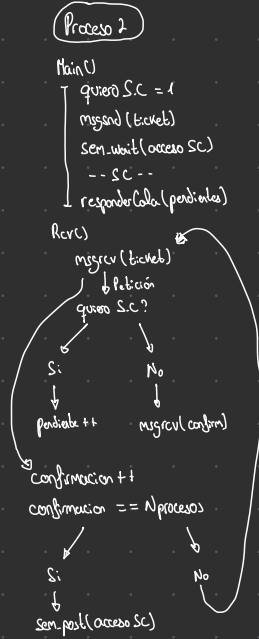 Proceso 2
Main()
quiero S.C = 1
msgsnd(ticket)
sem_wait(acceso SC)
-- SC --
responderCola(pendientes)
Rcv()
msgrcv(ticket)
Petición
quiero S.C?
Si
No
pendiente ++
msgrcv(confirm)
confirmacion ++
confirmacion == Nprocesos
Si
No
sem_post(acceso SC)